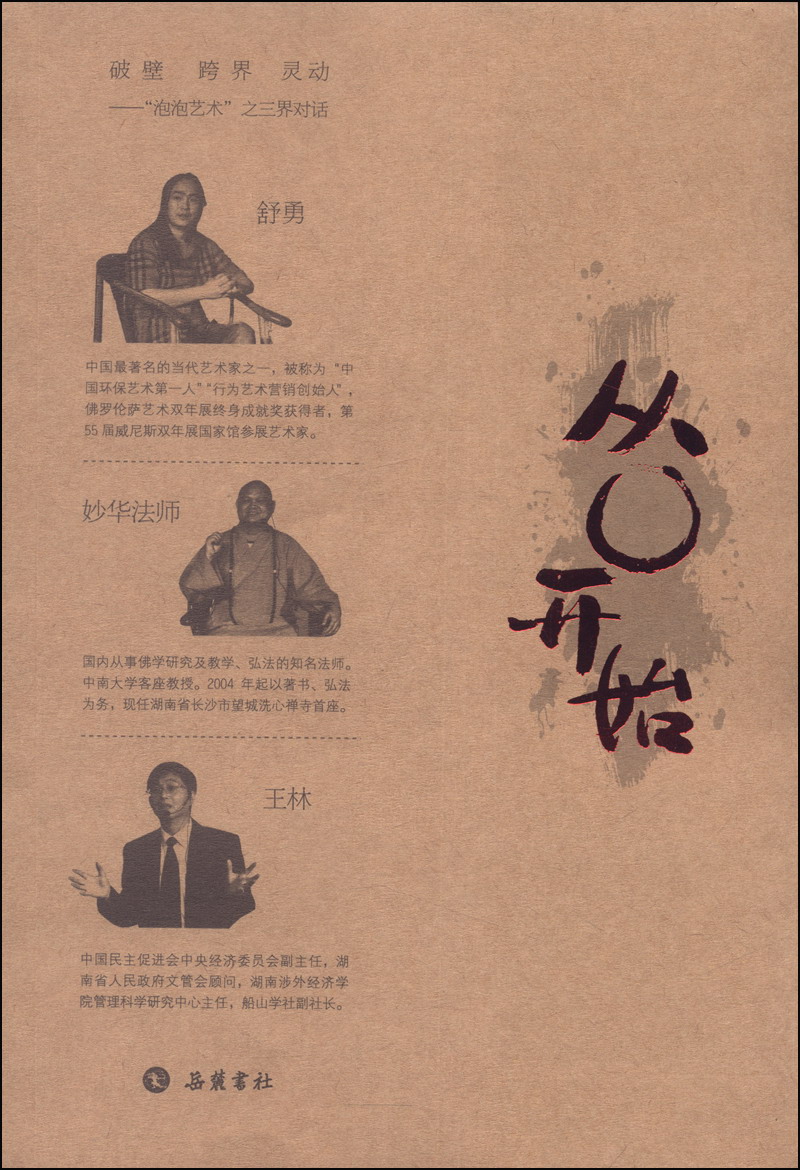 破壁 跨界 灵动
——“泡泡艺术”之三界对话
舒勇
中国最著名的当代艺术家之一，被称为“中
国环保艺术第一人”“行为艺术营销创始人”，
佛罗伦萨艺术双年展终身成就奖获得者，第
55届威尼斯双年展国家馆参展艺术家。
妙华法师
国内从事佛学研究及教学、弘法的知名法师。
中南大学客座教授。2004 年起以著书、弘法
为务，现任湖南省长沙市望城洗心禅寺首座。
王林
中国民主促进会中央经济委员会副主任，湖
南省人民政府文管会顾问，湖南涉外经济学
院管理科学研究中心主任，船山学社副社长。
岳麓书社
从
〇
开
始